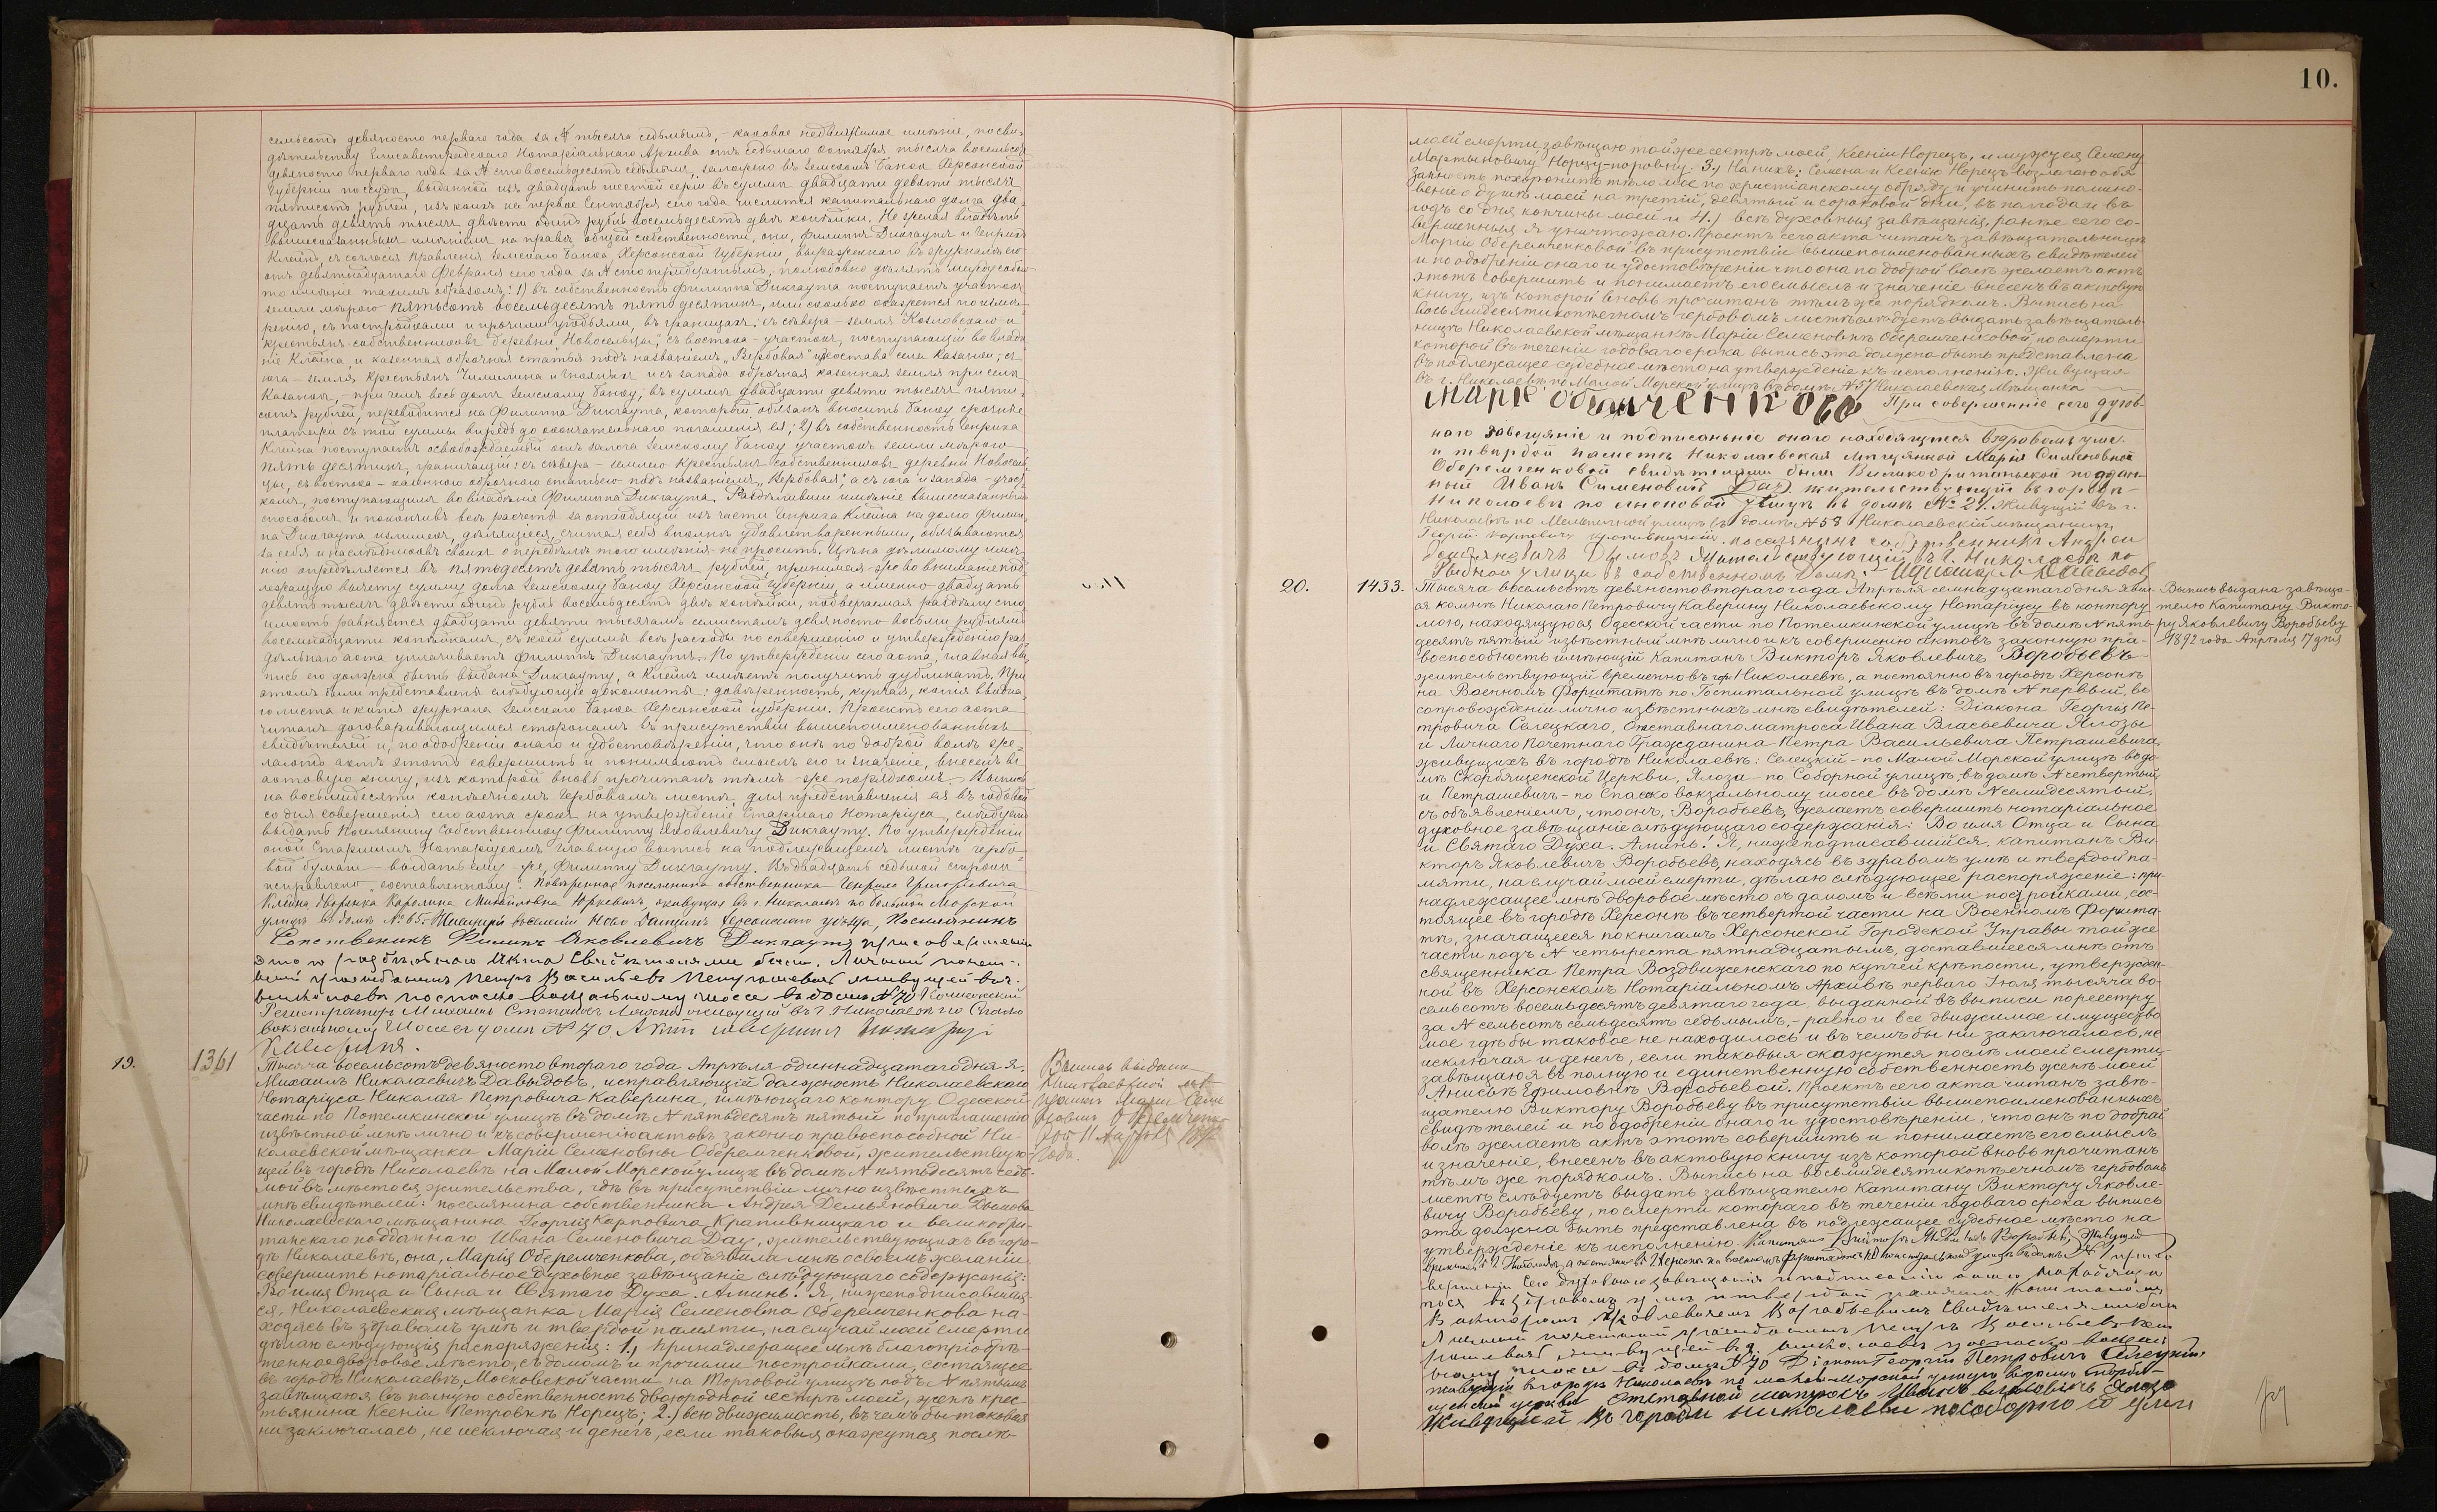 10.
семьсотъ девяносто перваго года за № тысяча седьмымъ, - каковое недвижимое имѣніе, по сви-
дѣтельству Елисаветградскаго Нотаріальнаго Архива отъ седьмаго октября тысяча восемьсотъ
девяносто перваго года за № сто восемьдесятъ седьмымъ, заложено въ Земскомъ Банкѣ Херсонской
Губерніи по ссудѣ, выданной изъ двадцать шестой серіи въ суммѣ двадцати девяти тысячъ
пятисотъ рублей, изъ коихъ на первое Сентября сего года числится капитальнаго долга два-
дцать девять тысячъ двѣсти одинъ рубль восемьдесятъ двѣ копѣйки. Не желая владѣть
вышесказаннымъ имѣніемъ на правѣ общей собственности, они, Филиппъ Дикгаутъ и Генрихъ
Клейнъ, съ согласія Правленія Земскаго Банка Херсонской Губерніи, выраженнаго въ журналѣ его
отъ девятнадцатаго Февраля сего года за № сто тридцатымъ, полюбовно дѣлятъ между собою
то имѣніе такимъ образомъ: 1) въ собственность Филиппа Дикгаута поступаетъ участокъ
земли мѣрою пятьсотъ восемьдесятъ пять десятинъ, или сколько окажется по измѣ-
ренію, съ постройками и прочими угодьями, въ границахъ: съ сѣвера - земля Козловскаго и
крестьянъ-собственниковъ деревни „Новосельцы,“ съ востока - участокъ, поступающій во владѣ-
ніе Клейна, и казенная оброчная статья подъ названіемъ „Вербовая“ и состава села Казанки; съ
юга - земля крестьянъ Чишлина и и съ запада оброчная казенная земля при селѣ
Казанкѣ, - при чемъ весь долгъ Земскому Банку, въ суммѣ двадцати девяти тысячъ пяти-
сотъ рублей, переводится на Филиппа Дикгаута, который обязанъ вносить Банку срочные
платежи съ той суммы впредь до окончательнаго погашенія ея; 2) въ собственность Генриха
Клейна поступаетъ освобождаемый отъ залога Земскому Банку участокъ земли мѣрою
пять десятинъ, граничащій: съ сѣвера - землею крестьянъ собственниковъ деревни Новосель-
цы, съ востока - казенною оброчною статьею подъ названіемъ „Вербовая“, а съ юга и запада - участ-
комъ, поступающимъ во владѣніе Филиппа Дикгаута. Раздѣливши имѣніе вышесказаннымъ
способомъ и покончивъ весь расчетъ за отходящій изъ части Генриха Клейна на долю Филип-
па Дикгаута излишекъ, дѣлящіеся, считая себя вполнѣ удовлетворенными, обязываются
за себя и наслѣдниковъ своихъ о передѣлѣ того имѣнія не просить. Цѣна дѣлимому имѣ-
нію опредѣляется въ пятьдесятъ девять тысячъ рублей, принимая-же во вниманіе под-
лежащую вычету сумму долга Земскому Банку Херсонской Губерніи, а именно - двадцать
девять тысячъ двѣсти одинъ рубль восемьдесятъ двѣ копѣйки, подвергаемая раздѣлу сто-
имость равняется двадцати девяти тысячамъ семистамъ девяносто восьми рублямъ
восемнадцати копѣйкамъ, съ коей суммы всѣ расходы по совершенію и утвержденію раз-
дѣльнаго акта уплачиваетъ Филиппъ Дикгаутъ. По утвержденіи сего акта, главная вы-
пись его должна быть выдана Дикгауту, а Клейнъ имѣетъ получить дубликатъ. При
этомъ были представлены слѣдующіе документы: довѣренность, купчая, копія вводна-
го листа и копія журнала Земскаго Банка Херсонской губерніи. Проектъ сего акта
читанъ договаривающимся сторонамъ въ присутствіи вышепоименованныхъ
свидѣтелей и, по одобреніи онаго и удостовѣреніи, что онѣ по доброй волѣ же-
лаютъ актъ этотъ совершить и понимаютъ смыслъ его и значеніе, внесенъ въ
актовую книгу, изъ которой вновь прочитанъ тѣмъ-же порядкомъ. Выпись
на восьмидесяти копѣечномъ Гербовомъ листѣ, для представленія ея въ годовой
со дня совершенія сего акта срокъ на утвержденіе Старшаго Нотаріуса, слѣдуетъ
выдать Поселянину Собственнику Филиппу Яковлевичу Дикгауту. По утвержденіи
оной Старшимъ Нотаріусомъ главную выпись на подлежащемъ листѣ гербо-
вой бумаги - выдать ему-же, Филиппу Дикгауту. Въ двадцать седьмой строкѣ
исправлено „составленному“. Повѣренная поселянина собственника Генриха Григорьевича
Клейна дворянка Каролина Михайловна Юркевичъ, живущая въ г. Николаевѣ по большой Морской
улицѣ въ домѣ № 65. Живущій въ селеніи Ней Данцигъ Херсонскаго уѣзда, Поселянинъ
Сопственикъ Филипъ Яковлевичъ Дикгаутъ при совершеніи
этого раздѣльнаго Акта Свидѣтелями были. Личный почет-
ный гражданинъ Петръ Васильевъ Петрашевичъ живущей въ г.
николаевѣ по спаско вокзальному шоссе въ домѣ № 70 Коллежскій
Регистраторъ Михаилъ Степановъ живущій въ г. Николаевѣ по Спаско
вокзальному Шоссе домъ № 70. Актъ совершилъ Нотаріусъ
Каверинъ.
19. 1361
Тысяча восемьсотъ девяносто втораго года Апрѣля одиннадцатаго дня я,
Михаилъ Николаевичъ Давыдовъ, исправляющій должность Николаевскаго
Нотаріуса Николая Петровича Каверина, имѣющаго контору Одесской
части по Потемкинской улицѣ въ домѣ № пятьдесятъ пятый по приглашенію
извѣстной мнѣ лично и къ совершенію актовъ законно правоспособной Ни-
колаевской мѣщанки Маріи Семеновны Оберемченковой, жительствую-
щей въ городѣ Николаевѣ на Малой Морской улицѣ въ домѣ № пятьдесятъ седь-
мой въ мѣсто ея жительства, гдѣ въ присутствіи лично извѣстныхъ
мнѣ свидѣтелей: поселянина собственника Андрея Демьяновича Дымова
Николаевскаго мѣщанина Георгія Карповича Крапивницкаго и великобри-
танскаго подданнаго Ивана Семеновича Дау, жительствующихъ въ горо-
дѣ Николаевѣ, она, Марія Оберемченкова, объявила мнѣ о своемъ желаніи
совершить нотаріальное духовное завѣщаніе слѣдующаго содержанія:
Во имя Отца и Сына и Святаго Духа. Аминь. Я, нижеподписавшая-
ся, Николаевская мѣщанка Марія Семеновна Оберемченкова на-
ходясь въ здравомъ умѣ и твердой памяти, на случай моей смерти
дѣлаю слѣдующія распоряженія: 1., Принадлежащее мнѣ благопріобрѣ-
тенное дворовое мѣсто, съ домомъ и прочими постройками, состоящее
въ городѣ Николаевѣ, Московской части на Торговой улицѣ подъ № пятымъ
завѣщаю я въ полную собственность двоюродной сестрѣ моей, женѣ крес-
тьянина Ксеніи Петровнѣ Норецъ; 2.) всю движимость, въ чемъ бы таковая
ни заключалась, не исключая и денегъ, если таковыя окажутся послѣ
Выпись выдана
Николаевской мѣ-
щанкѣ Маріи Семе-
новнѣ Оберемченко-
вой 11 Апрѣля 1892
года.
моей смерти завѣщаю той же сестрѣ моей, Ксеніи Норецъ, и мужу ея Семену
Мартыновичу Норцу - поровну. 3.) На нихъ: Семена и Ксенію Норецъ возлагаю обя-
занность похоронить тѣло мое по христіанскому обряду и учинить помино-
веніе о душѣ моей на третій, девятый и сороковой дни, въ полгода и въ
годъ со дня кончины моей и 4.) всѣ духовныя завѣщанія, ранѣе сего со-
вершенныя я уничтожаю. Проектъ сего акта читанъ завѣщательницѣ
Маріи Оберемченковой въ присутствіи вышепоименованныхъ свидѣтелей
и по одобреніи онаго и удостовѣреніи что она по доброй волѣ желаетъ актъ
этотъ совершить и понимаетъ его смыслъ и значеніе внесенъ въ актовую
книгу, изъ которой вновь прочитанъ тѣмъ же порядкомъ. Выпись на
восьмидесятикопѣечномъ гербовомъ листѣ слѣдуетъ выдать завѣщатель-
ницѣ Николаевской мѣщанкѣ Маріи Семеновнѣ Оберемченковой, по смерти
которой въ теченіи годоваго срока выпись эта должна быть представлена
въ подлежащее судебное мѣсто на утвержденіе къ исполненію. Живущая
въ г. Николаевѣ по Малой Морской улицѣ въ домѣ № 57 Николаевская Мѣщанка
При совершеніе сего духов-
наго завещяніе и подписаньніе онаго находящиеся вздоровомъ уме
и твирдой паметѣ Николаевская Мѣщянкой Марія Сименовной
Оберемченковой свидѣтелями были Великобританьской поддан-
ный Иванъ Сименовичъ Дау, жительствующій въ городѣ
Николаевѣ по улицѣ въ домѣ № 21. Живущій въ г.
Николаевѣ по Мельничной улицѣ въ домѣ № 58 Николаевскій мѣщанинъ
Георгій Карповичъ Крапивницкій. поселянинъ собственникъ Андрей
Демьяновичъ Дымовъ Жытельствующій въ г. Николаевѣ по
Рыбной улицы въ собственномъ Домѣ.
20. 1433.
Тысяча восемьсотъ девяносто втораго года Апрѣля семнадцатаго дня яви-
ся ко мнѣ Николаю Петровичу Каверину Николаевскому Нотаріусу въ контору
мою, находящуюся Одесской части по Потемкинской улицѣ въ домѣ № пять-
десятъ пятый извѣстный мнѣ лично и къ совершенію актовъ законную пра-
воспособность имѣющій Капитанъ Викторъ Яковлевичъ Воробьевъ
жительствующій временно въ гор. Николаевѣ, а постоянно въ городѣ Херсонѣ
на Военномъ Форштатѣ по Госпитальной улицѣ въ домѣ № первый, во
сопровожденіи лично извѣстныхъ мнѣ свидѣтелей: Діакона Георгія Пе-
тровича Селецкаго, Отставнаго матроса Ивана Власьевича Ялозы
и Личнаго Почетнаго Гражданина Петра Васильевича Петрашевича,
живущихъ въ городѣ Николаевѣ: Селецкій - по Малой Морской улицѣ въ до-
мѣ Скорбященской Церкви, Ялоза - по Соборной улицѣ, въ домѣ № четвертый
и Петрашевичъ - по Спаско вокзальному шоссе въ домѣ № семидесятый,
съ объявленіемъ, что онъ, Воробьевъ, желаетъ совершить нотаріальное
духовное завѣщаніе слѣдующаго содержанія: Во имя Отца и Сына
и Святаго Духа. Аминь. Я, нижеподписавшійся, капитанъ Ви-
кторъ Яковлевичъ Воробьевъ, находясь въ здравомъ умѣ и твердой па-
мяти, на случай моей смерти, дѣлаю слѣдующее распоряженіе: при-
надлежащее мнѣ дворовое мѣсто съ домомъ и всѣми постройками, сос-
тоящее въ городѣ Херсонѣ въ четвертой части на Военномъ Форшта-
тѣ, значащееся по книгамъ Херсонской Городской Управы той же
части подъ № четыреста пятнадцатымъ, доставшееся мнѣ отъ
священника Петра Воздвиженскаго по купчей крѣпости, утвержден-
ной въ Херсонскомъ Нотаріальномъ Архивѣ перваго Іюля тысяча во-
семьсотъ восемьдесятъ девятаго года, выданной въ выписи по реестру
за № семьсотъ семьдесятъ седьмымъ, - равно и все движимое имущество
мое гдѣ бы таковое не находилось и въ чемъ бы ни заключалось, не
исключая и денегъ, если таковыя окажутся послѣ моей смерти
завѣщаю я въ полную и единственную собственность женѣ моей
Анисьѣ Ефимовнѣ Воробьевой. Проектъ сего акта читанъ завѣ-
щателю Виктору Воробьеву въ присутствіи вышепоименованныхъ
свидѣтелей и по одобреніи онаго и удостовѣреніи, что онъ по доброй
волѣ желаетъ актъ этотъ совершить и понимаетъ его смыслъ
и значеніе, внесенъ въ актовую книгу изъ которой вновь прочитанъ
тѣмъ же порядкомъ. Выпись на восьмидесятикопѣечномъ гербовомъ
листѣ слѣдуетъ выдать завѣщателю Капитану Виктору Яковле-
вичу Воробьеву, по смерти котораго въ теченіи годоваго срока выпись
эта должна быть представлена въ подлежащее судебное мѣсто на
утвержденіе къ исполненію. Капитанъ Викторъ Яковлевъ Воробьевъ, живущій
временно въ г. Николаевѣ, а постоянно въ г. Херсонѣ на военномъ форштатѣ по госпитальной улицѣ въ домѣ № 1 при со-
вершеніи Сего духовнаго завѣщанія и подписаніи онаго находяща-
гося въ здравомъ умѣ и твердой памяти Капитаномъ
Викторомъ Яковлевичемъ Воробьевымъ Свидѣтелями были
Личный почетный гражданинъ Петръ Васильевъ Пет-
рашевичъ живущей въ г. николаевѣ по спаско вокзаль-
ному шоссе въ домѣ № 70 Діаконъ Георгій Петровичъ Селецкій
живущій въ городѣ Николаевѣ по малой-морской улицѣ въ домѣ Скорбя-
щенской церкви Отставной матросъ Иванъ власовичъ Ялоза
Живущей въ городи николаеви по соборной улицы
Выпись выдана завѣща-
телю Капитану Викто-
ру Яковлевичу Воробьеву
1892 года Апрѣля 17 дня